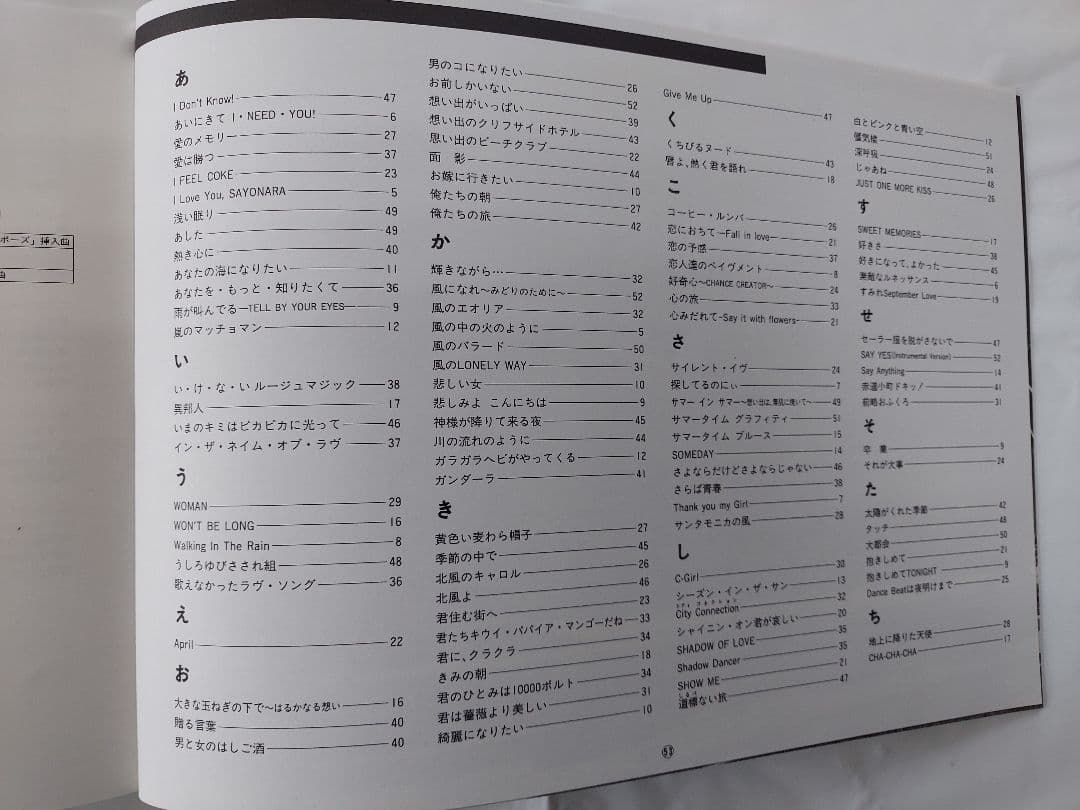 ポーズ」挿入曲
曲
あ
I Don't Know! 47
あいにきて I・NEED・YOU! 6
愛のメモリー 27
愛は勝つ 37
I FEEL COKE 23
I Love You, SAYONARA 5
浅い眠り 49
あした 49
熱き心に 40
あなたの海になりたい 11
あなたを・もっと・知りたくて 36
雨が叫んでる—TELL BY YOUR EYES 9
嵐のマッチョマン 12
い
い・け・な・い ルージュマジック 38
異邦人 17
いまのキミはピカピカに光って 46
イン・ザ・ネイム・オブ・ラヴ 37
う
WOMAN 29
WON'T BE LONG 16
Walking In The Rain 8
うしろゆびさされ組 48
歌えなかったラヴ・ソング 36
え
April 22
お
大きな玉ねぎの下で〜はるかなる想い 16
贈る言葉 40
男と女のはしご酒 40
男のコになりたい 26
お前しかいない 52
想い出がいっぱい 39
想い出のクリフサイドホテル 43
思い出のビーチクラブ 22
面 影 44
お嫁に行きたい 10
俺たちの朝 27
俺たちの旅 42
か
輝きながら… 32
風になれ〜みどりのために〜 52
風のエオリア 32
風の中の火のように 5
風のバラード 50
風のLONELY WAY 31
悲しい女 10
悲しみよ こんにちは 9
神様が降りて来る夜 45
川の流れのように 44
ガラガラヘビがやってくる 12
ガンダーラ 41
き
黄色い麦わら帽子 27
季節の中で 45
北風のキャロル 26
北風よ 46
君住む街へ 23
君たちキウイ・パパイア・マンゴーだね 33
君に、クラクラ 34
きみの朝 18
君のひとみは10000ボルト 34
君は薔薇より美しい 31
綺麗になりたい 10
Give Me Up 47
く
くちびるヌード 43
唇よ、熱く君を語れ 18
こ
コーヒー・ルンバ 25
恋におちて—Fall in love— 21
恋の予感 37
恋人達のペイヴメント 8
好奇心〜CHANCE CREATOR〜 24
心の旅 33
心みだれて-Say it with flowers- 21
さ
サイレント・イヴ 24
探してるのにぃ 7
サマー イン サマー〜想い出は、素肌に焼いて〜 49
サマータイム グラフィティ 51
サマータイム ブルース 15
SOMEDAY 14
さよならだけどさよならじゃない 46
さらば青春 38
Thank you my Girl 7
サンタモニカの風 28
し
C-Girl 30
シーズン・イン・ザ・サン 13
シティ コネクション
City Connection 32
シャイニン・オン君が哀しい 20
SHADOW OF LOVE 35
Shadow Dancer 35
SHOW ME 21
しるべ
道標ない旅 47
白とピンクと青い空 12
蜃気楼 51
深呼吸 24
じゃあね 48
JUST ONE MORE KISS 26
す
SWEET MEMORIES 17
好きさ 38
好きになって、よかった 45
素敵なルネッサンス 6
すみれSeptember Love 19
せ
セーラー服を脱がさないで 47
SAY YES(Instrumental Version) 52
Say Anything 14
赤道小町ドキッ! 41
前略おふくろ 31
そ
卒 業 9
それが大事 24
た
太陽がくれた季節 42
タッチ 48
大都会 50
抱きしめて 21
抱きしめてTONIGHT 9
Dance Beatは夜明けまで 25
ち
地上に降りた天使 28
CHA-CHA-CHA 17
53